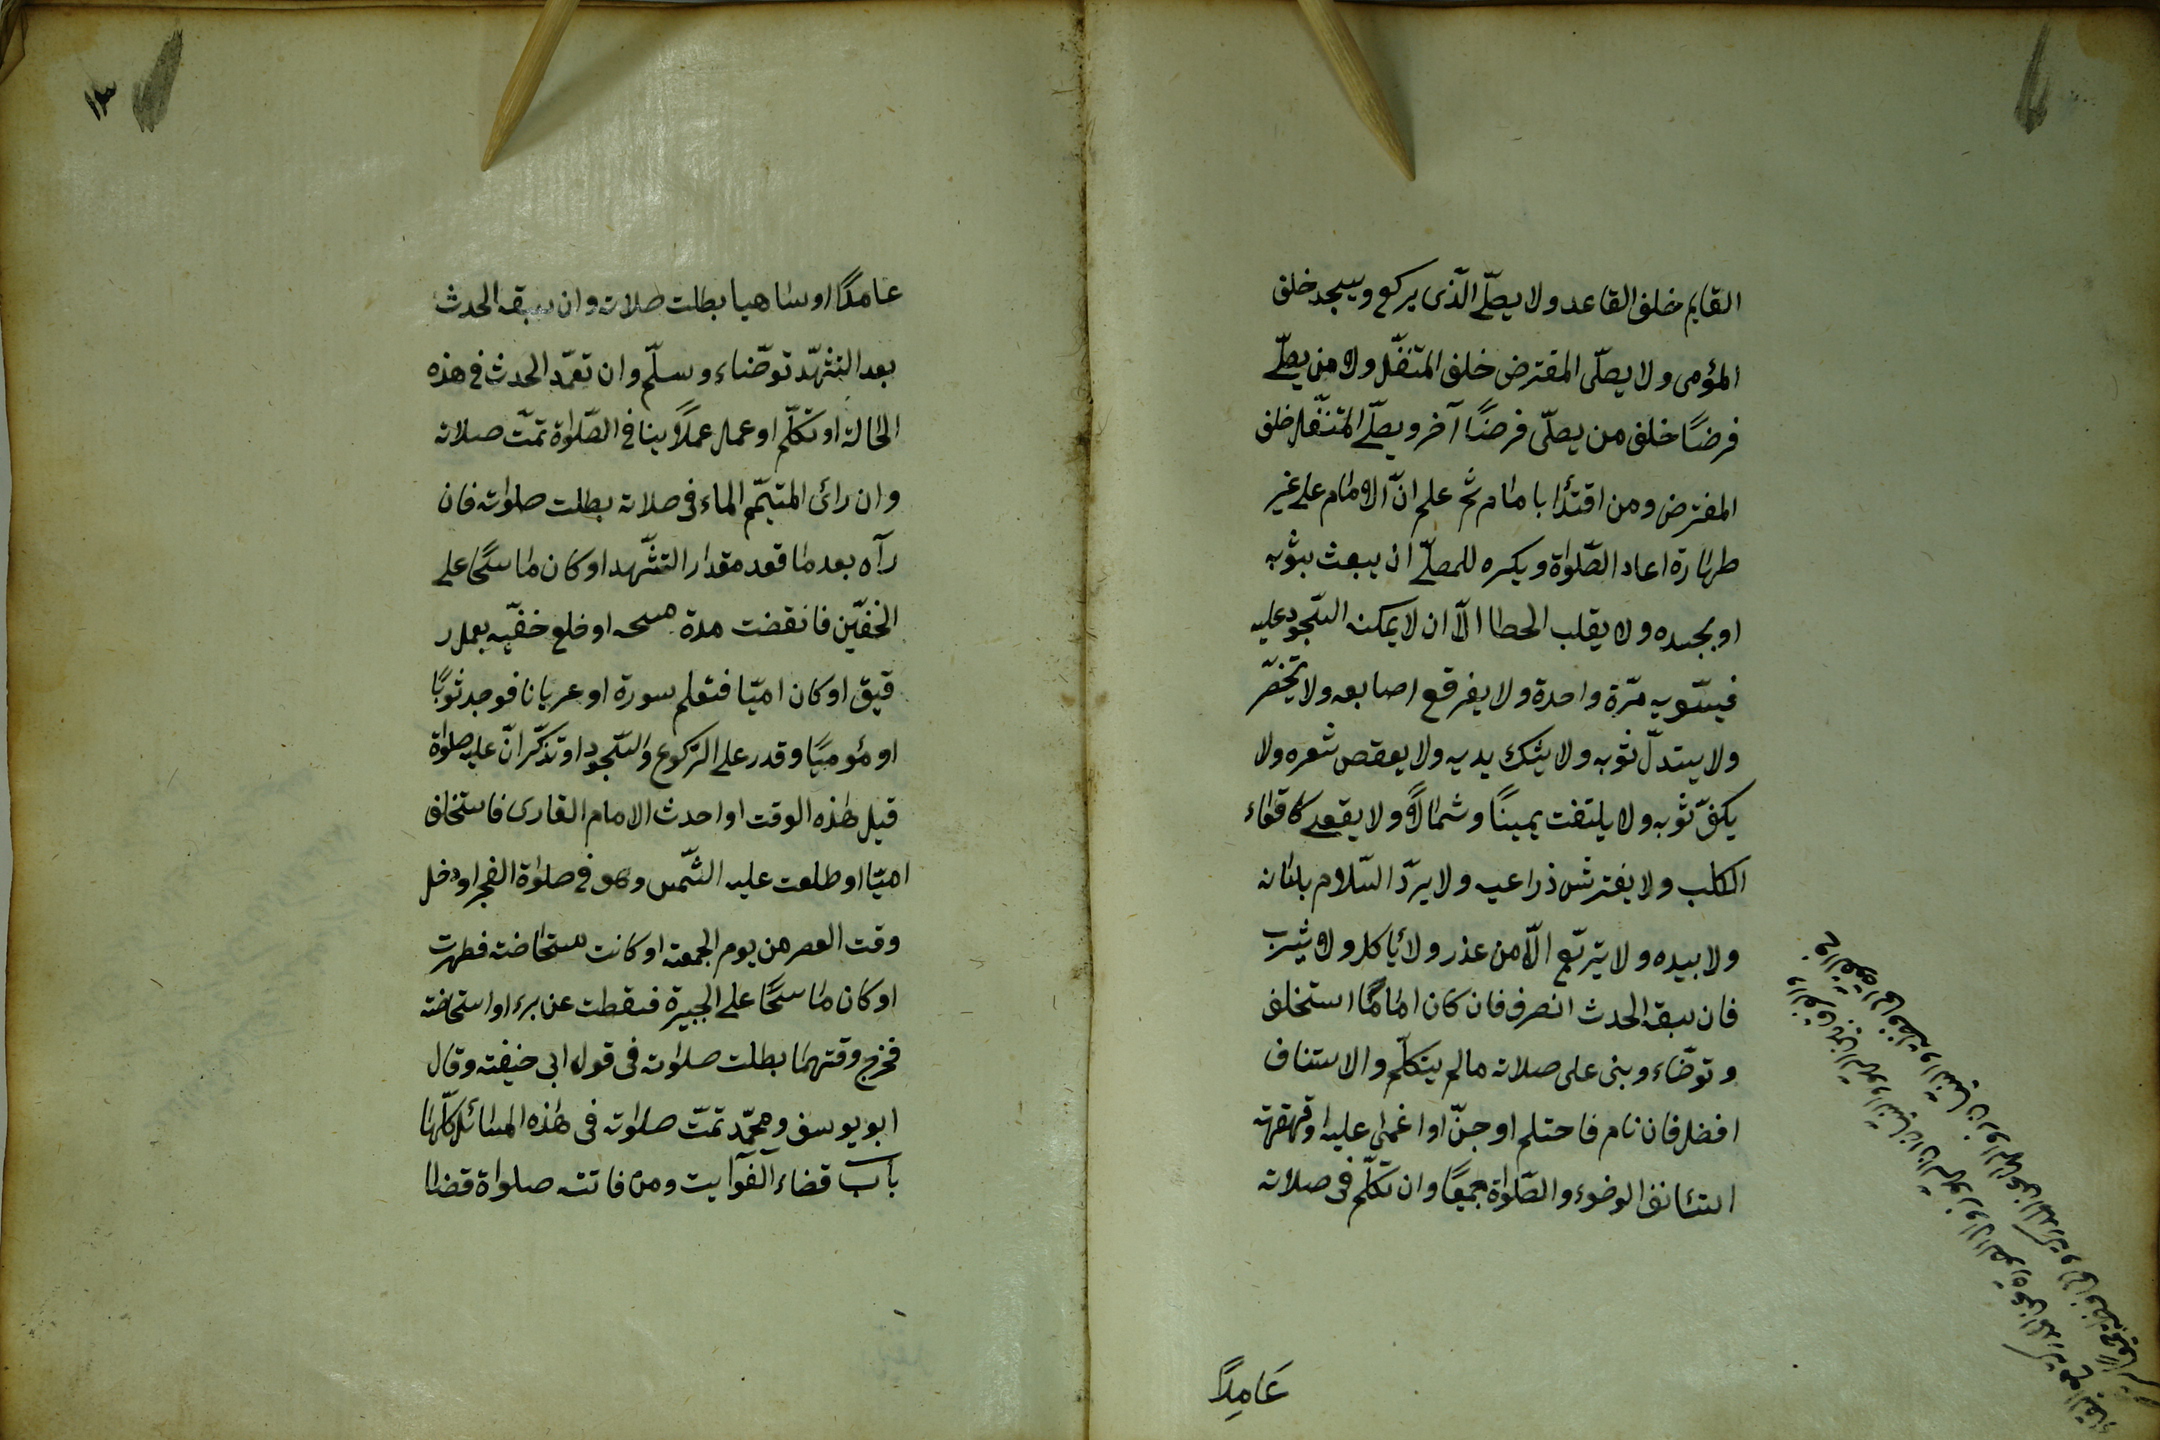 القايم خلف القاعد ولا يصلّے الّذى يركع ويسجد خلف
المؤمى ولا يصلّى المفترض خلف المتنفّل ولا من يصلّے
فرضًا خلف من يصلّى فرضًا آخر ويصلّے المتنفّل خلف
المفترض ومن اقتدا بامام ثم علم انّ الامام على غير
طهارة اعاد الصّلوٰة ويكره للمصلّے ان يبعث بثوبه
او بجسده ولا يقلب الحطا الّا ان لا يمكنه السّجود عليه
فيسّويه مرّة واحدة ولا يفرقع اصابعه ولا تخصّر
ولا يستدلّ ثوبه ولا يشبك يديه ولا يعقص شعره ولا
يكفّ ثوبه ولا يلتفت يمينًا وشمالًا ولا يقعے كاقعاء
الكلب ولا يفترش ذراعيه ولا يردّ السّلام بلسانه
ولا بيده ولا يتربّع الّا من عذر ولا ياكل ولا يشرب
فان سبقه الحدث انصرف فان كان امامًا استخلف
وتوضّاء وبنى على صلاته مالم يتكلّم والاستناف
افضل فان نام فاحتلم او جنّ او اغمى عليه او قهقهة
استانف الوضوء والصّلوٰة جميعًا وان تكلّم فى صلاته
عَامِدًا
عامدًا او ساهيا بطلت صلاته وان سبقه الحدث
بعد التشهّد توضّاء وسلّم وان تعمّد الحدث فى هذه
الحالة او تكلّم او عمل عملًا ينافى الصّلوٰة تمّت صلاته
وان رائ المتيمّم الماء فى صلاته بطلت صلوٰته فان
رآه بعد ما قعد مقدار التشّهد او كان ماسحًا على
الخفّين فانقضت مدة مسحه او خلع خفّيه بعمل ر
قيق او كان اميّا فتعلم سورة او عريانا فوجد ثوبًا
او مؤميًا وقدر على الرّكوع والسّجود او تذكّر انّ عليه صلوٰة
قبل هٰذه الوقت او احدث الامام القارى فاستخلف
اميّا او طلعت عليه الشّمس وهو فى صلوٰة الفجر او دخل
وقت العصر من يوم الجمعة او كانت مستحاضة فطهرت
او كان ماسحًا على الجبيرة فسقطت عن برء او استحاضة
فخرج وقتهما بطلت صلوٰته فى قول ابى حنيفة وقال
ابو يوسف ومحمّد تمّت صلوٰته فى هٰذه المسائل كلّها
باب قضاء الفوآيت ومن فاتته صلوٰة قضاا